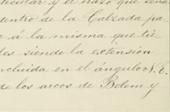 ticular, y el trazo que sena
dentro de la Calzada pa
á la misma que tie
les siendo la extensión
cluida en el ángulo N. E.
de los arcos de Belem y